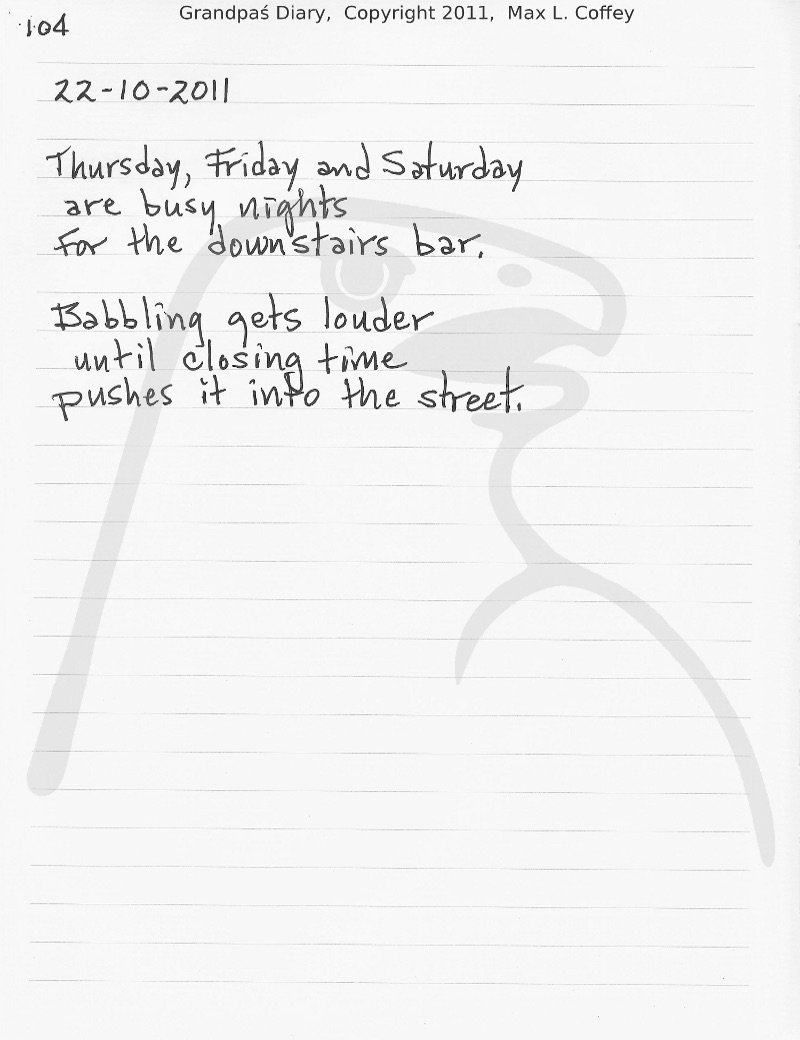 Grandpaś Diary, Copyright 2011, Max L. Coffey
104
22-10-2011
Thursday, Friday and Saturday
are busy nights
for the downstairs bar.
Babbling gets louder
until closing time
pushes it into the street.